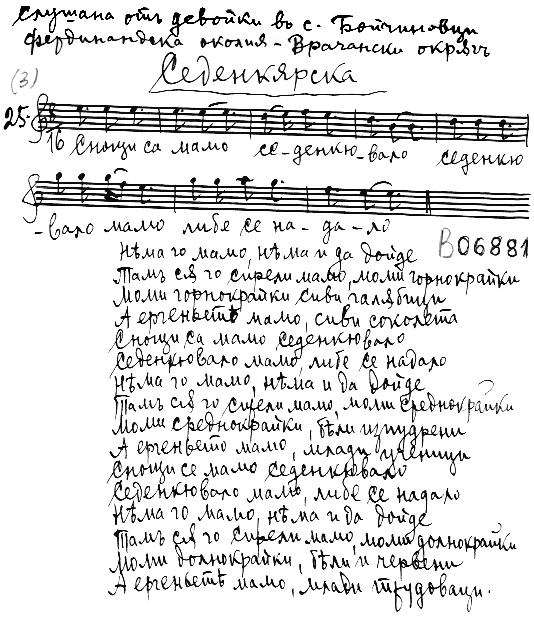 Слушана отъ девойки во с. Бойчиновци
Фердинандска околия - Врачански окрѫгъ
(3)
Седенкярска
25.
16 Снощи са мамо се-денкю-вало седенкю
-вало мамо либе се на-да-ло
Нѣма го мамо, нѣма и да дойде
B06881
Тамъ ся го спрели мамо, моми горнокрайки
Моми горнокрайки сиви галябици
А ергеньетѣ мамо, сиви соколета
Снощи са мамо седенкювало
Седенкювало мамо, либе се надало
Нѣма го мамо, нѣма и да дойде
Тамъ ся го спрели мамо, моми среднокрайки
Моми среднокрайки, бѣли изпудрени
А ергеньето мамо, млади ученици
Снощи се мамо седенкювало
Седенкювало мамо, либе се надало
Нѣма го мамо, нѣма и да дойде
Тамъ ся го спрели мамо, моми долнокрайки
Моми долнокрайки, бѣли и червени
А ергеньетѣ мамо, млади трудоваци.